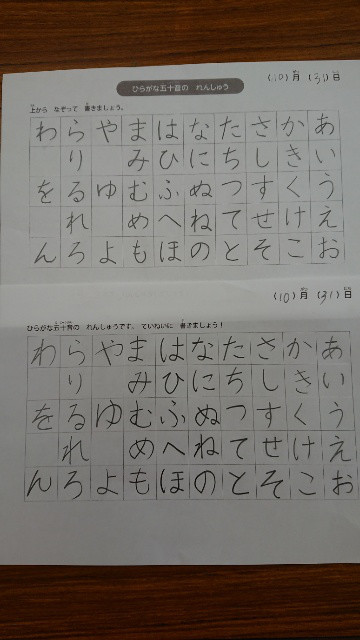 ひらがな五十音の れんしゅう
(10)月 (31)日
上から なぞって 書きましょう。
わらやまはなたさかあ
り みひにちしきい
をるゆむふぬつすくう
れ めへねてせけえ
んろよもほのとそこお
(10)月 (31)日
ひらがな五十音の れんしゅうです。ていねいに 書きましょう!
わらやまはなたさかあ
り みひにちしきい
をるゆむふぬつすくう
れ めへねてせけえ
んろよもほのとそこお